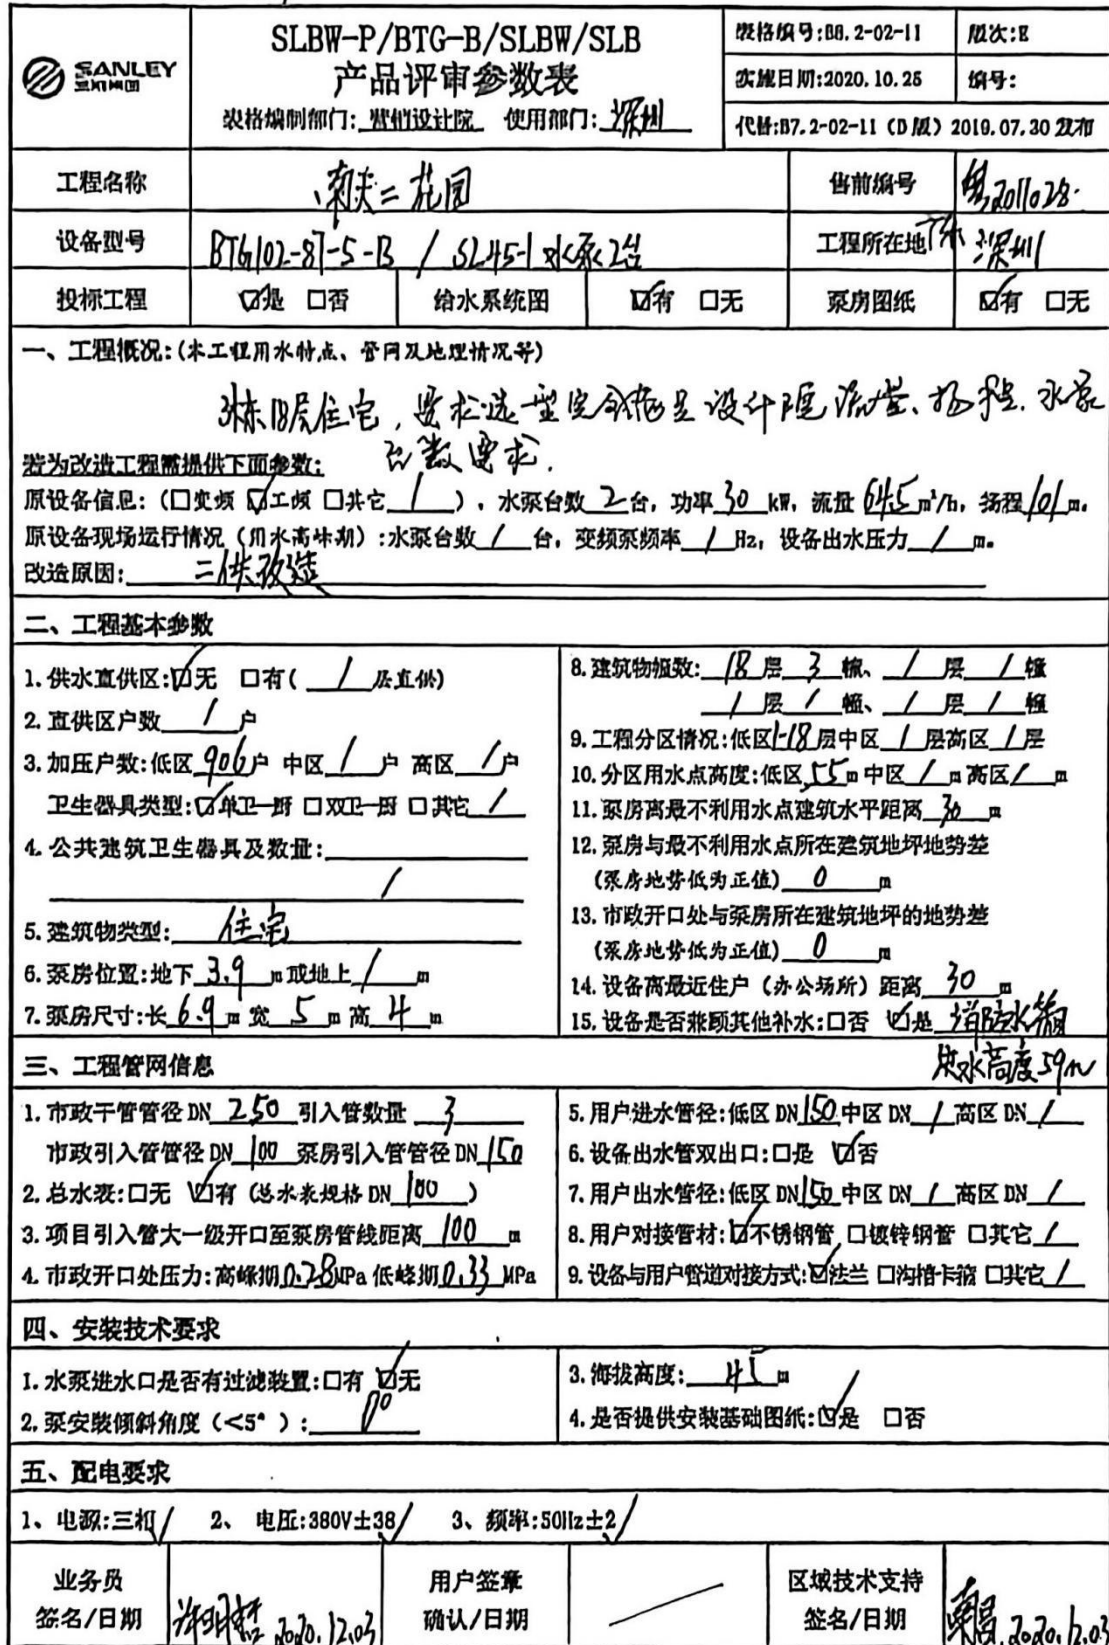 SANLEY
三利集团
SLBW-P/BTG-B/SLBW/SLB
产品评审参数表
表格编制部门:营销设计院 使用部门:深圳
表格编号:B6.2-02-11 版次:E
实施日期:2020.10.25 编号:
代替:B7.2-02-11(D版)2019.07.30发布
工程名称 南天二花园 售前编号 2011028
设备型号 BTG102-87-5-B / SL45-1 水泵2台 工程所在地 深圳
投标工程 ☑是 □否 给水系统图 ☑有 □无 泵房图纸 ☑有 □无
一、工程概况:(本工程用水特点、管网及地理情况等)
3栋18层住宅,要求选型完全满足设计院流量、扬程.水泵
台数要求.
若为改造工程需提供下面参数:
原设备信息:(□变频 ☑工频 □其它 / ),水泵台数 2 台,功率 30 kW,流量 64.5 m³/h,扬程 101 m。
原设备现场运行情况(用水高峰期):水泵台数 / 台,变频泵频率 / Hz,设备出水压力 / m。
改造原因: 二供改造
二、工程基本参数
1.供水直供区:☑无 □有( / 层直供)
2.直供区户数 / 户
3.加压户数:低区 906 户 中区 / 户 高区 / 户
卫生器具类型:☑单卫一厨 □双卫一厨 □其它 /
4.公共建筑卫生器具及数量:
/
5.建筑物类型: 住宅
6.泵房位置:地下 3.9 m或地上 / m
7.泵房尺寸:长 6.9 m 宽 5 m 高 4 m
8.建筑物幢数: 18 层 3 幢、 / 层 / 幢
/ 层 / 幢、 / 层 / 幢
9.工程分区情况:低区 1-18 层中区 / 层高区 / 层
10.分区用水点高度:低区 55 m 中区 / m 高区 / m
11.泵房离最不利用水点建筑水平距离 30 m
12.泵房与最不利用水点所在建筑地坪地势差
(泵房地势低为正值) 0 m
13.市政开口处与泵房所在建筑地坪的地势差
(泵房地势低为正值) 0 m
14.设备离最近住户(办公场所)距离 30 m
15.设备是否兼顾其他补水:□否 ☑是 消防水箱
供水高度59m
三、工程管网信息
1.市政干管管径 DN 250 引入管数量 3
市政引入管管径 DN 100 泵房引入管管径 DN 150
2.总水表:□无 ☑有(总水表规格 DN 100 )
3.项目引入管大一级开口至泵房管线距离 100 m
4.市政开口处压力:高峰期 0.28 MPa 低峰期 0.33 MPa
5.用户进水管径:低区 DN 150 中区 DN / 高区 DN /
6.设备出水管双出口:□是 ☑否
7.用户出水管径:低区 DN 150 中区 DN / 高区 DN /
8.用户对接管材:☑不锈钢管 □镀锌钢管 □其它 /
9.设备与用户管道对接方式:☑法兰 □沟槽卡箍 □其它 /
四、安装技术要求
1.水泵进水口是否有过滤装置:□有 ☑无
2.泵安装倾斜角度(<5°): 0°
3.海拔高度: 45 m
4.是否提供安装基础图纸:☑是 □否
五、配电要求
1、电源:三相√ 2、电压:380V±38√ 3、频率:50Hz±2√
业务员
签名/日期
2020.12.03
用户签章
确认/日期
区域技术支持
签名/日期
2020.12.03